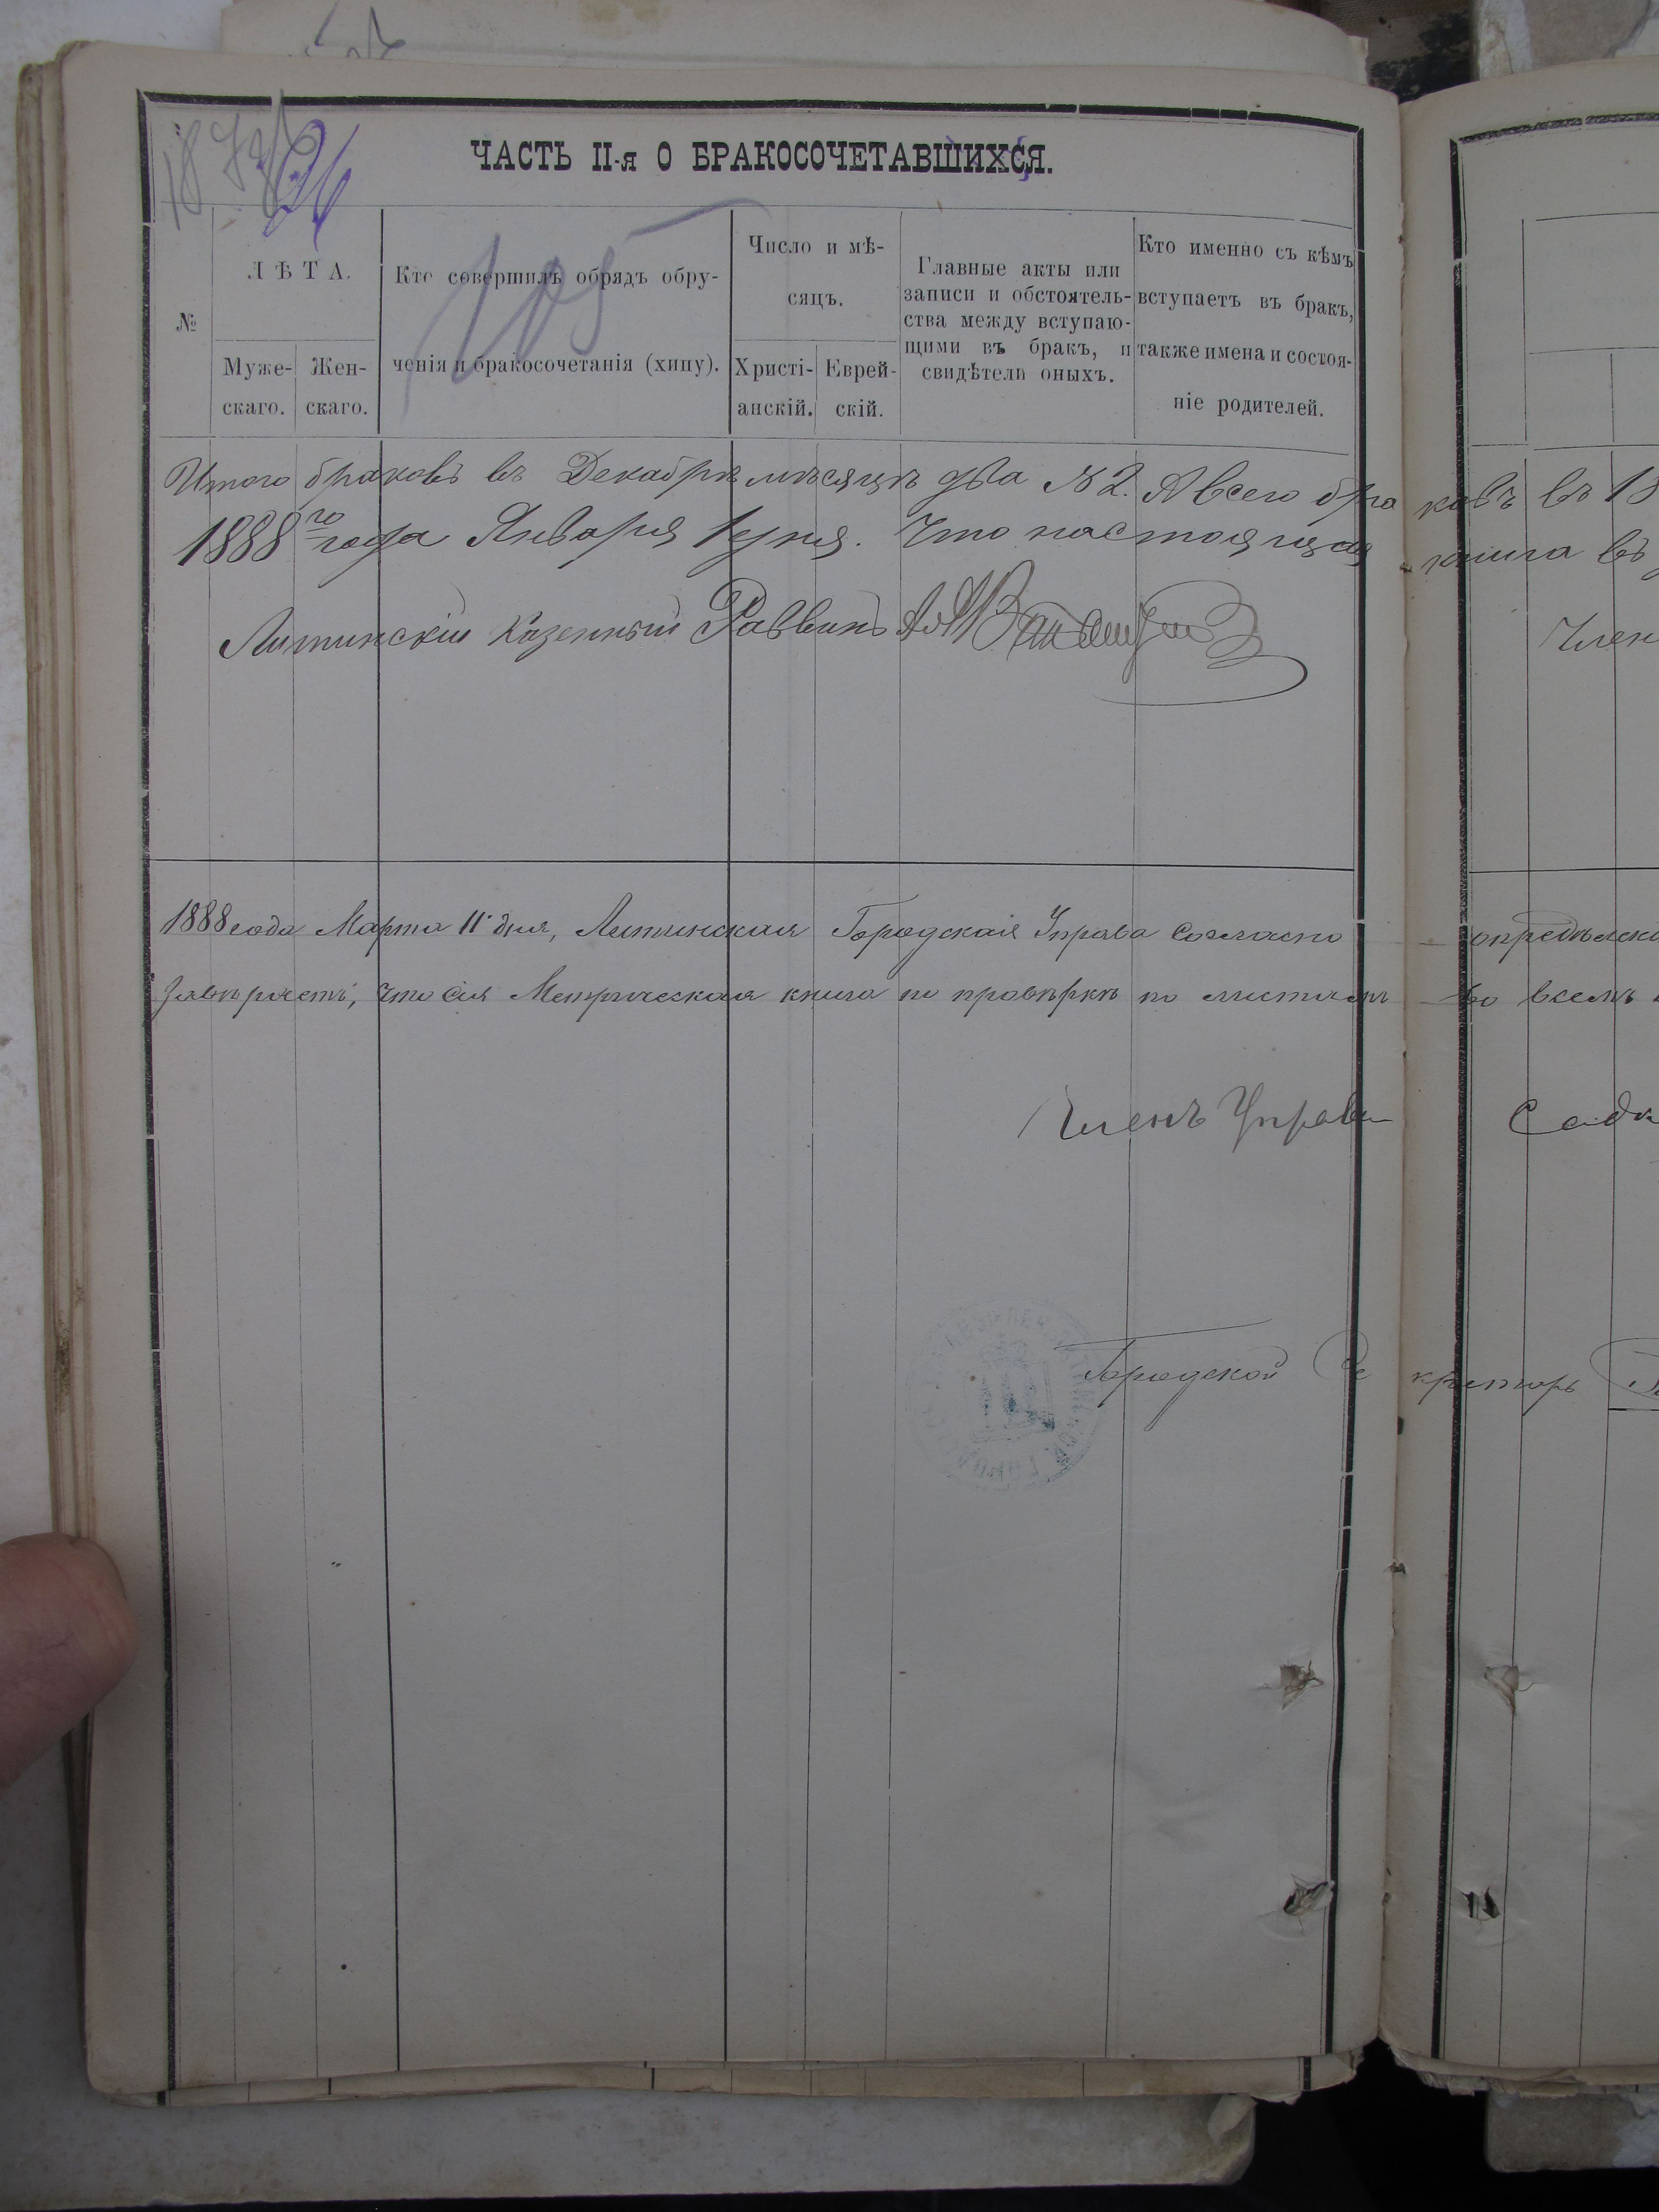 ЧАСТЬ II-я О БРАКОСОЧЕТАВШИХСЯ.
№
ЛѢТА.
Муже-
скаго.
Жен-
скаго.
Кто совершилъ обрядъ обру-
ченія и бракосочетанія (хипу).
Число и мѣ-
сяцъ.
Христі-
анскій.
Еврей-
скій.
Главные акты или
записи и обстоятель-
ства между вступаю-
щими въ бракъ, и
свидѣтели оныхъ.
Кто именно съ кѣмъ
вступаетъ въ бракъ,
также имена и состоя-
ніе родителей.
Итого браковъ въ Декабрѣ мѣсяцѣ два №2. А всего браковъ въ 18
1888го года Января 1 дня. Что настоящая книга въ
Литинскій Казенный Раввинъ
Член
1888 года Марта 11 дня, Литинская Городская Управа согласно опредѣлені
завѣряетъ, что сия Метрическая книга по провѣркѣ по листамъ во всемъ
Членъ Управы
Городской Секретарь